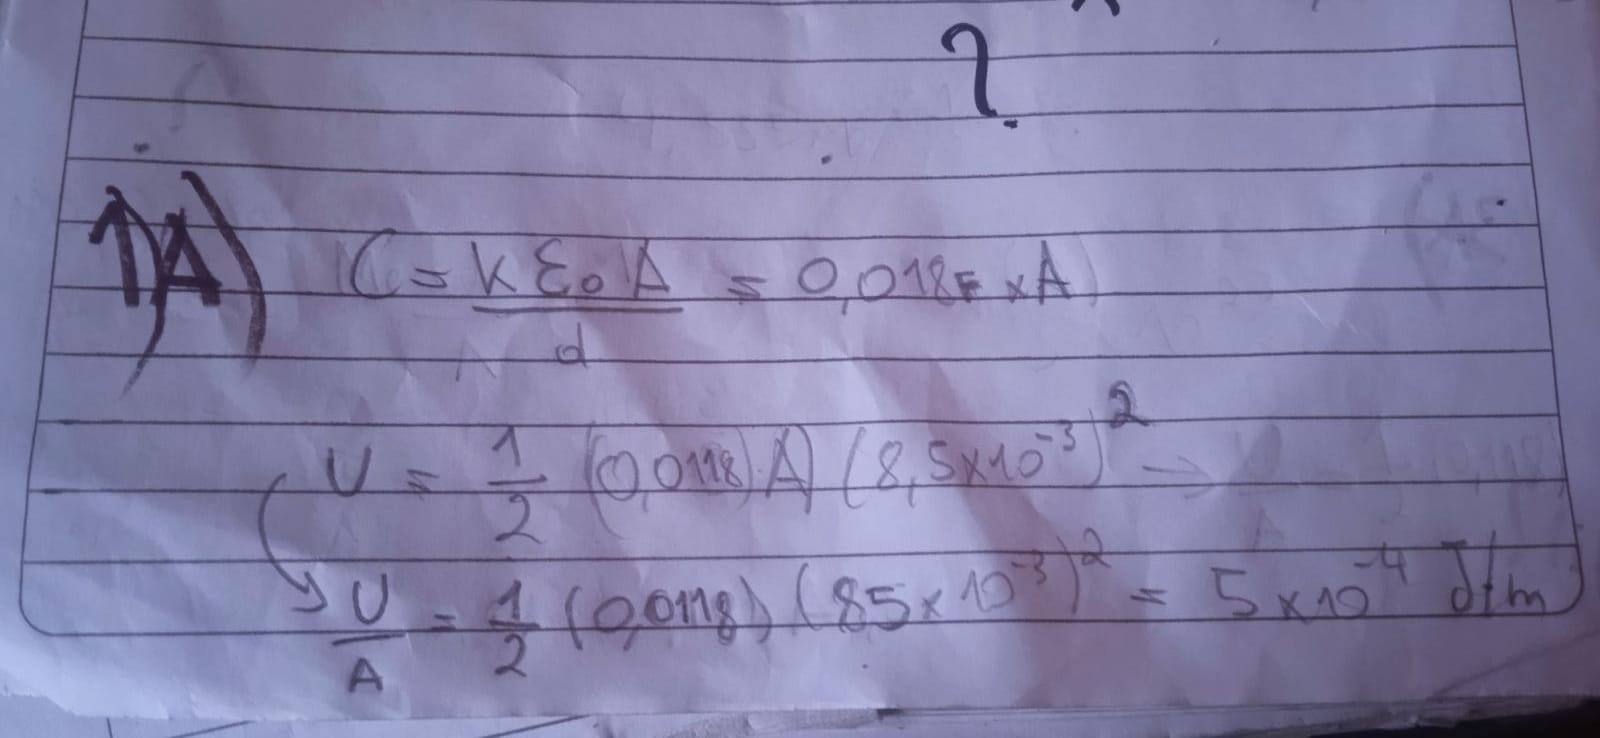 ?
1)A) C = kε₀A / d = 0,018F xA
U = 1/2 (0,0118).A) (8,5x10⁻³)² →
U/A = 1/2 (0,0118) (85x10⁻³)² = 5x10⁻⁴ J/m